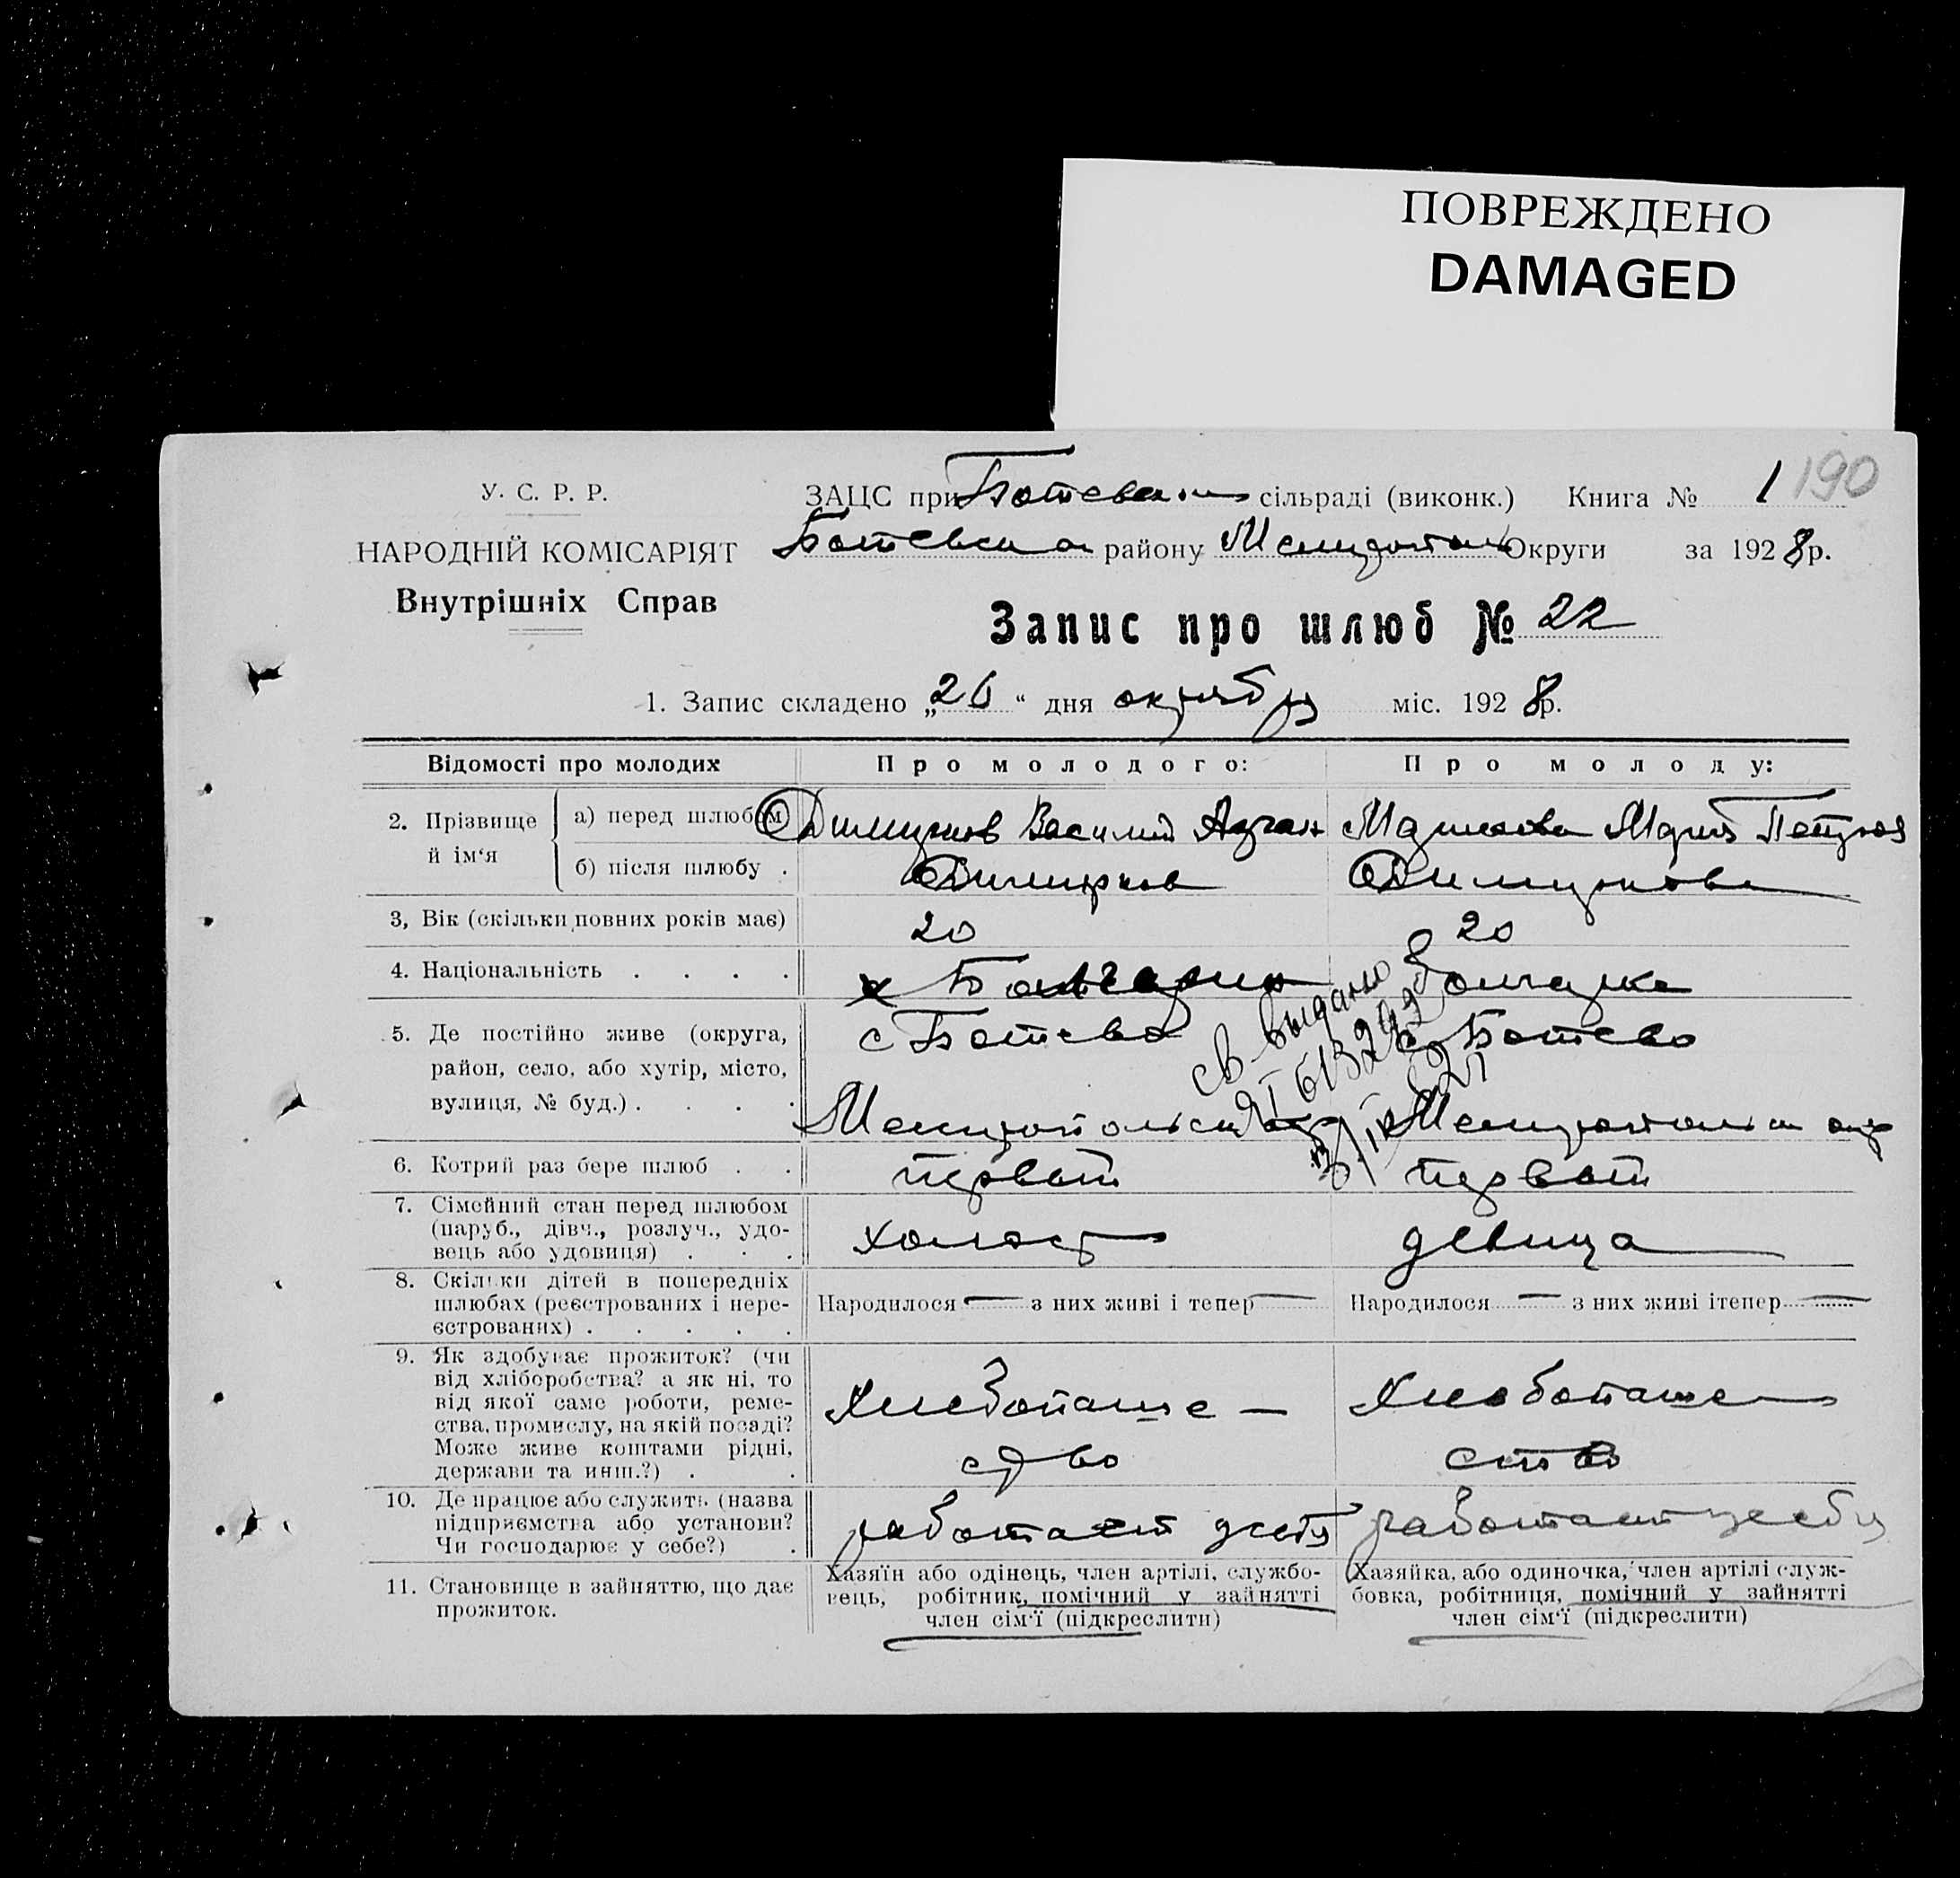 ПОВРЕЖДЕНО
DAMAGED
190
У. С. Р. Р.
НАРОДНІЙ КОМІСАРІЯТ
Внутрішніх Справ
ЗАЦС при сільраді (виконк.) Книга № 1
району Округи за 1928 р.
Запис про шлюб № 22
1. Запис складено „26“ дня октября міс. 1928 р.
Відомості про молодих
Про молодого:
Про молоду:
2. Прізвище й ім‘я
а) перед шлюбом
Василий
Мария
б) після шлюбу .
3, Вік (скільки повних років має)
20
20
4. Національність . . . .
х Болгарин
болгарка
5. Де постійно живе (округа,
район, село, або хутір, місто,
вулиця, № буд.) . . . .
с Ботево
с Ботево
св. выдано
6. Котрий раз бере шлюб . .
первый
первый
7. Сімейний стан перед шлюбом
(паруб., дівч., розлуч., удо-
вець або удовиця) . . .
холост
девица
8. Скільки дітей в попередніх
шлюбах (реєстрованих і нере-
єстрованих) . . . . .
Народилося — з них живі і тепер —
Народилося — з них живі ітепер —
9. Як здобуває прожиток? (чи
від хліборобства? а як ні, то
від якої саме роботи, реме-
ства, промислу, на якій посаді?
Може живе коштами рідні,
держави та инш.?) . .
Хлебопаше-
ство
Хлебопаше
ство
10. Де працює або служить (назва
підприємства або установи?
Чи господарює у себе?) .
работает у себя
работает у себя
11. Становище в зайняттю, що дає
прожиток.
Хазяїн або одінець, член артілі, службо-
вець, робітник, помічний у зайнятті
член сім‘ї (підкреслити)
Хазяйка, або одиночка, член артілі служ-
бовка, робітниця, помічний у зайнятті
член сім‘ї (підкреслити)